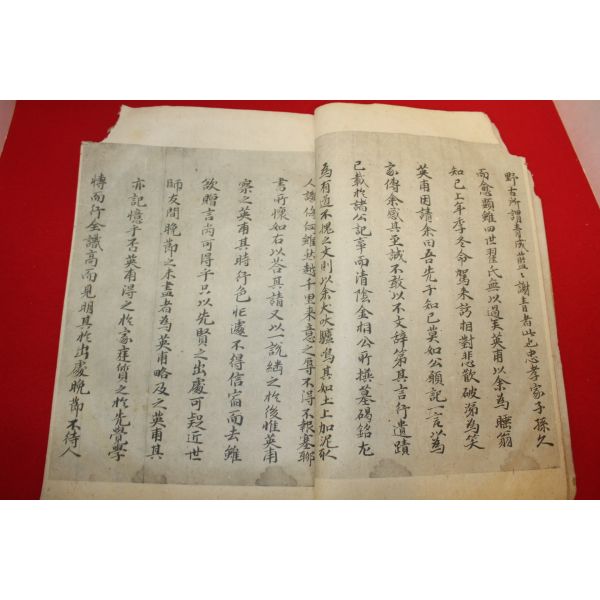 野古所謂青成藍藍謝青者此也忠孝家子孫久
而愈顯雖四世翟氏無以過矣英甫以余爲睡翁
知已上年季冬命駕来訪相對悲歡破涕爲笑
英甫因請余曰吾先子知已莫如公願記一言以爲
家傳余感其至誠不敢以不文辞第其言行遺蹟
已載於諸公記事而清陰金相公所撰墓碣銘尤
爲有道不愧之文則以余犬吠驢鳴眞如土上加泥耿
人譏侮征雖然越千里来意之辱不得不報塞聊
書所懷如右以答其請又以一説繼之於後惟英甫
察之英甫其時行色忙遽不得信宿而去雖
欲贈言尚可得乎只以先賢之出處可疑近世
師友間晩節之未盡者爲英甫略及之英甫其
亦記憶乎否英甫得之於家庭質之於先覺學
博而行全識高而見明其於出處晩節不待人